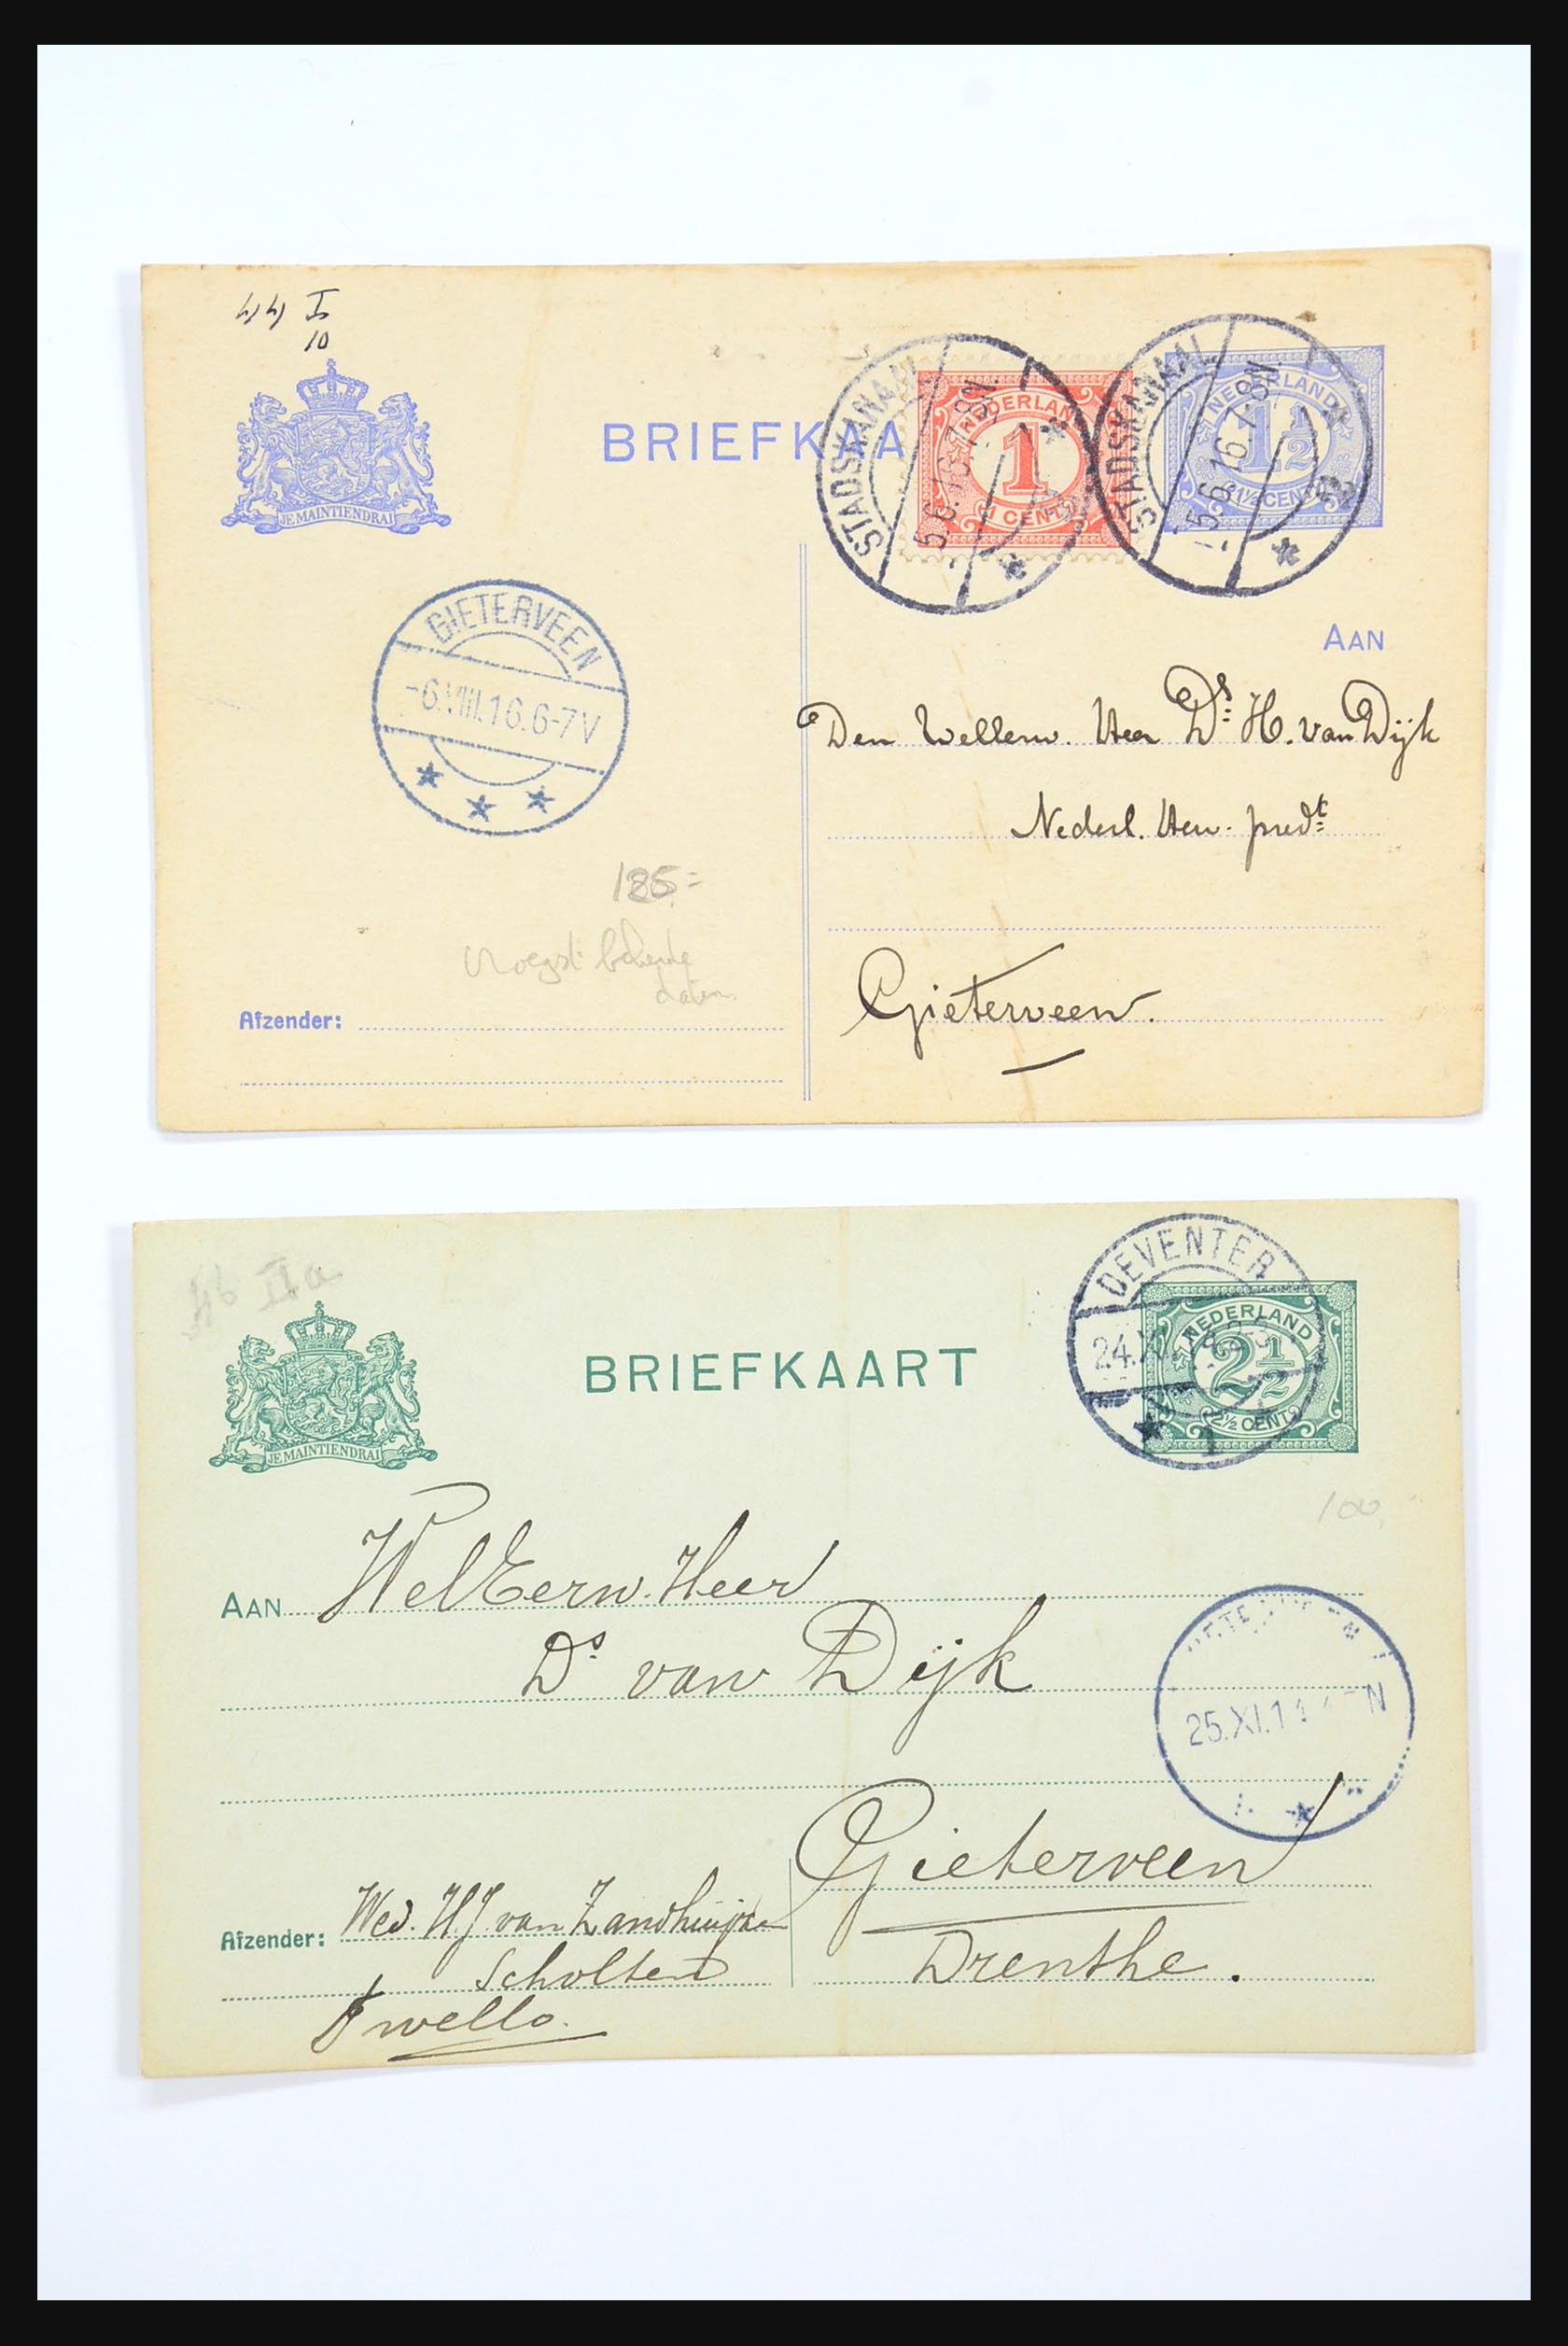 44 I
10
JE MAINTIENDRAI
BRIEFKAA
STADSKANAAL
5.6.16.7-8N.
NEDERLAND
1
1 CENT
STADSKANAAL
5.6.16.7-8N.
NEDERLAND
1½
1½ CENT
2
GIETERVEEN
-6.VIII.16.6-7V
AAN
Den Weleerw. Heer Ds H. van Dijk
Nederl. Herv. predt
Gieterveen.
185.=
Vroegst bekende
datum.
Afzender:
46 IIa
JE MAINTIENDRAI
BRIEFKAART
DEVENTER
24.XI.
1
NEDERLAND
2½
2½ CENT
100,-
AAN WelEerw. Heer
Ds. van Dijk
25.XI.1
N
Gieterveen
Drenthe.
Afzender: Wed. H.J. van Zandhuijzen
Scholten
Twello.